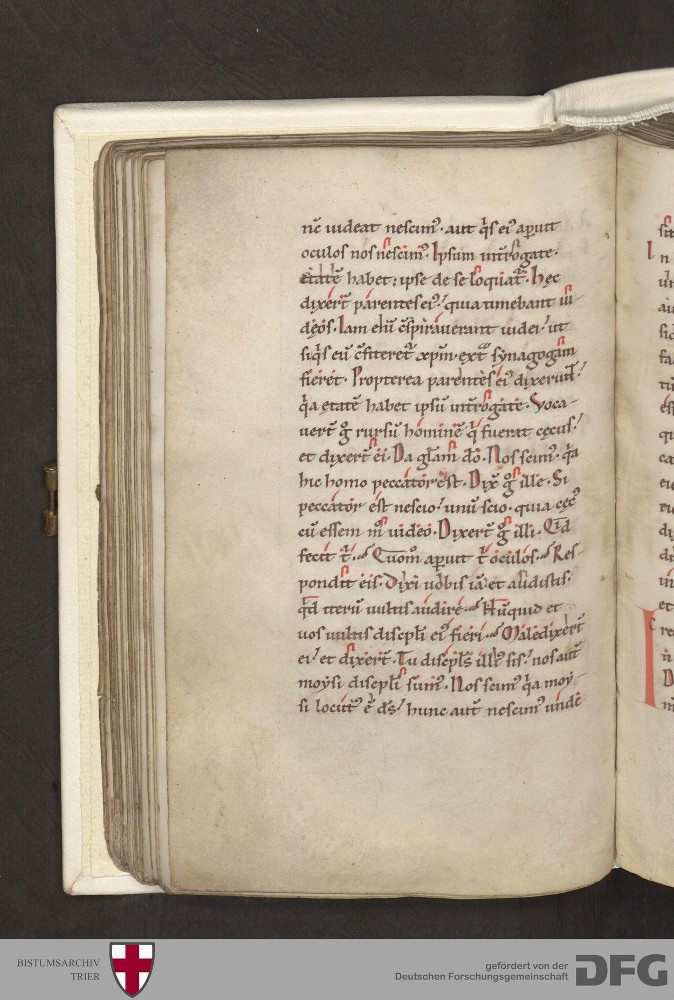 nc̄ uideat nescim᷒. aut q̇s ei᷒ aperuit
oculos nos nescim᷒. Ipsum int̄rogate.
ętatē habet: ipse de se loquat᷑. Hęc
dixer̄t parentes ei᷒ quia timebant iu
dęos. Iam eni̅ c̄spirauerant iudei ut
siq̇s eu̅ c̄fiteret᷑ xp̄m ext᷒ synagogam
fieret. Propterea parentes ei᷒ dixerunt
q̇a ętatē habet ipsu̅ int̄rogate. Voca
uert̄ g̊ rursu̅ hominē q̇ fuerat cęcus.
et dixer̄t ei. Da gl̄am dō. Nos scim᷒. q̇a
hic homo peccator est. Dix̄ g̊ ille. Si
peccator est nescio. unu̅ scio. quia cęc᷒
cu̅ essem m̊ uideo. Dixer̄t g̊ illi. Qid
fecit t̄. Quom̊ aperuit t̄ oculos. Res
pondit eis. Dixi uobis iā et audistis.
qd̄ iteru̅ uultis audire. Nu̅quid et
uos uultis discipl̄i ei᷒ fieri. Maledixer̄t
ei. et dixer̄t. Tu discipl̄s illi᷒ sis. nos aut̄
moysi discipl̄i sum᷒. Nos scim᷒ q̇a moy
si locut᷒ ē ds̄. hunc aut̄ nescim᷒ unde
BISTUMSARCHIV
TRIER
gefördert von der
Deutschen Forschungsgemeinschaft
DFG